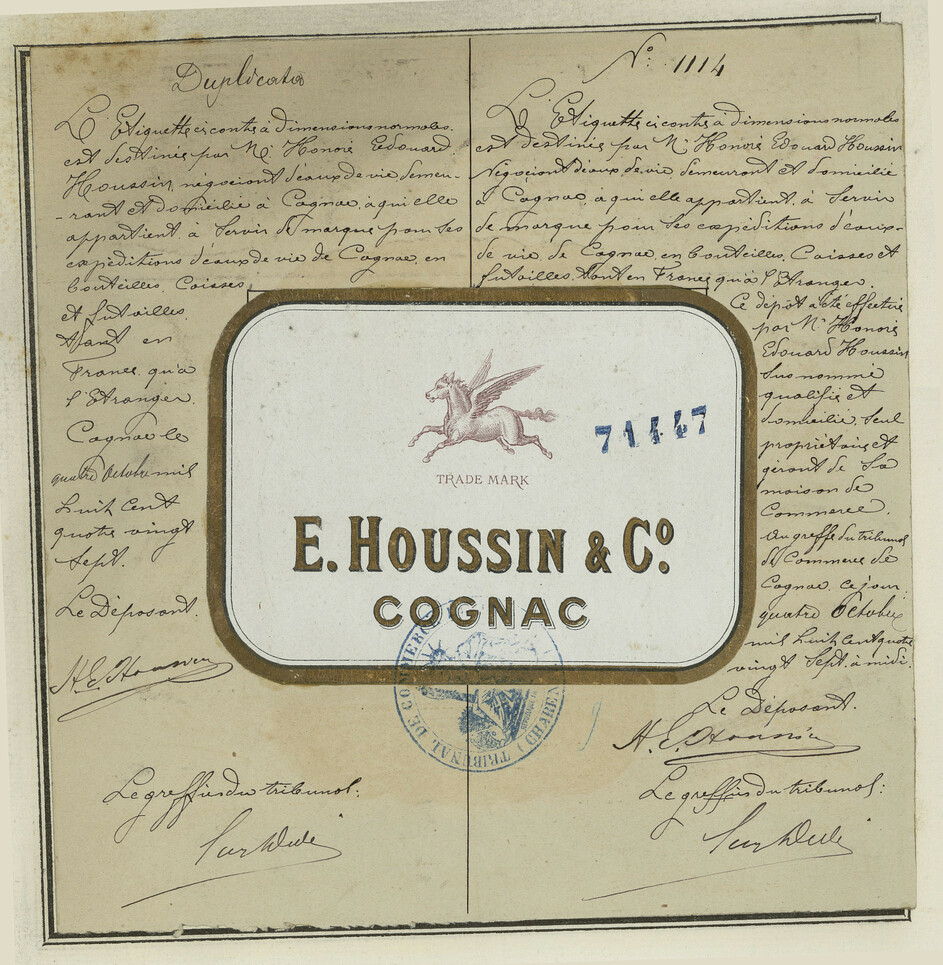 Duplicata
L'Etiquette ci contre à dimensions normales.
est destinée par Mr. Honoré Edouard
Houssin, négociant d'eaux de vie demeu-
-rant et domicilié à Cognac, à qui elle
appartient à servir de marque pour ses
expéditions d'eaux de vie de Cognac, en
bouteilles, Caisses,
et futailles,
tant en
France qu'à
l'Etranger.
Cognac le
quatre Octobre mil
huit cent
quatre vingt
sept.
Le Déposant.
H. E. Houssin
Le greffier du tribunal:
N° 1114
L'Etiquette ci contre à dimensions normales
est destinée par Mr Honoré Edouard Houssin
Négociant d'eaux de vie, demeurant et domicilié
à Cognac, à qui elle appartient, à servir
de marque pour ses expéditions d'eaux-
de vie de Cognac, en bouteilles, Caisses et
futailles, tant en France qu'à l'Etranger.
Ce dépôt a été effectué
par Mr Honoré
Edouard Houssin
sus nommé
qualifié et
domicilié, seul
propriétaire et
gérant de sa
maison de
Commerce.
Au greffe du tribunal
de Commerce de
Cognac, ce jour
quatre Octobre
mil huit cent quatre
vingt sept. à midi.
Le Déposant.
H. E. Houssin
Le greffier du tribunal:
71447
TRADE MARK
E. HOUSSIN & Co.
COGNAC
TRIBUNAL DE COMMERCE